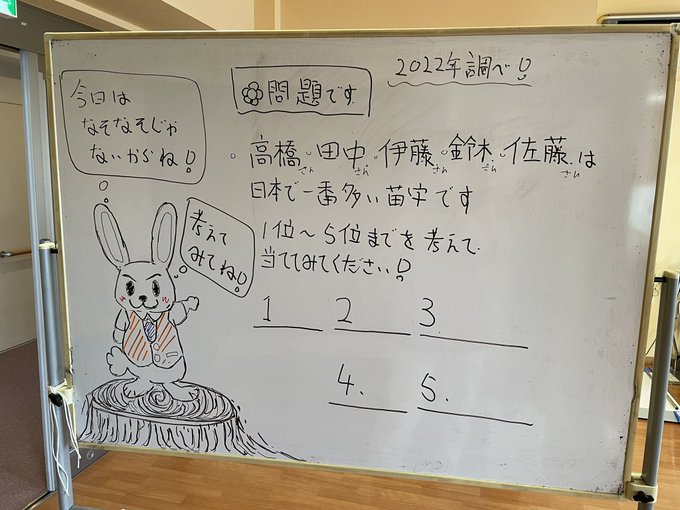 2022年調べ!
問題です
今日は
なぞなぞじゃ
ないからね!
高橋・田中・伊藤・鈴木・佐藤は
さん さん さん さん
日本で一番多い苗字です
考えて
みてね!
1位〜5位までを考えて
当ててみてください!
1 2 3.
4. 5.